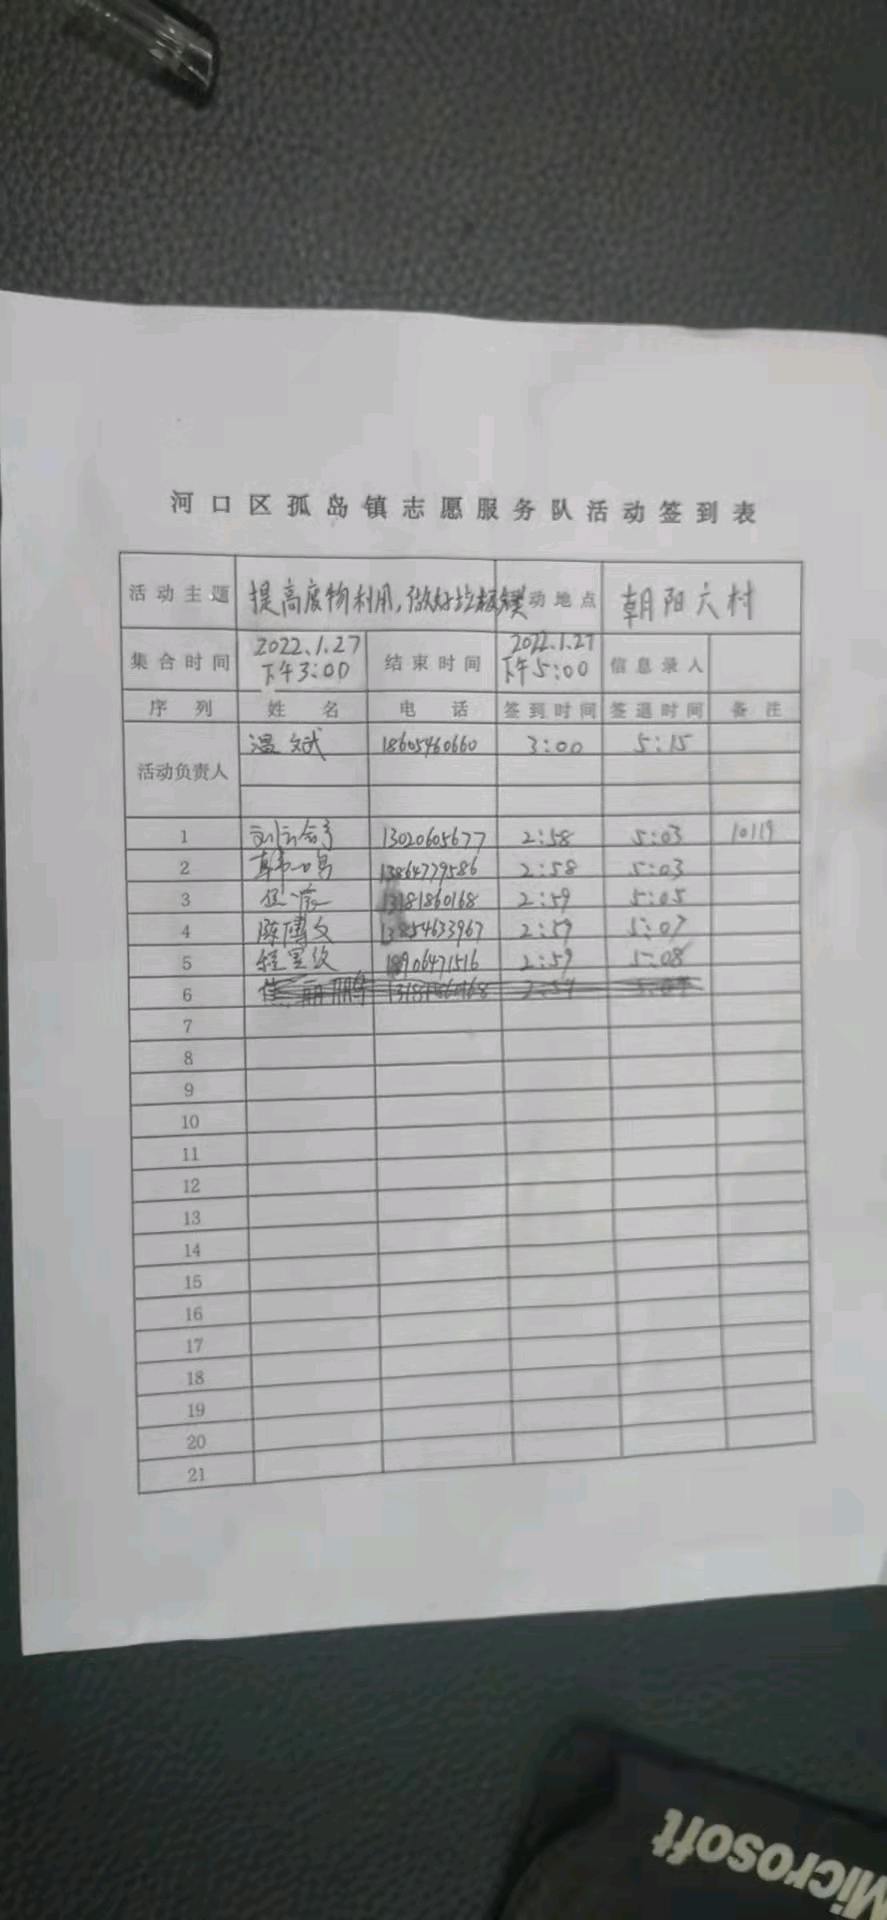 河口区孤岛镇志愿服务队活动签到表
活动主题 提高废物利用,做好垃圾 动地点 朝阳六村
集合时间 2022.1.27 下午3:00 结束时间 2022.1.27 下午5:00 信息录入
序列 姓名 电话 签到时间 签退时间 备注
活动负责人 温文斌 18605460660 3:00 5:15
1 13020605677 2:58 5:03 10119
2 13864779586 2:58 5:03
3 13181860168 2:59 5:05
4 陈博文 13854633967 2:59 5:07
5 18906471516 2:59 5:08
6
7
8
9
10
11
12
13
14
15
16
17
18
19
20
21
Microsoft